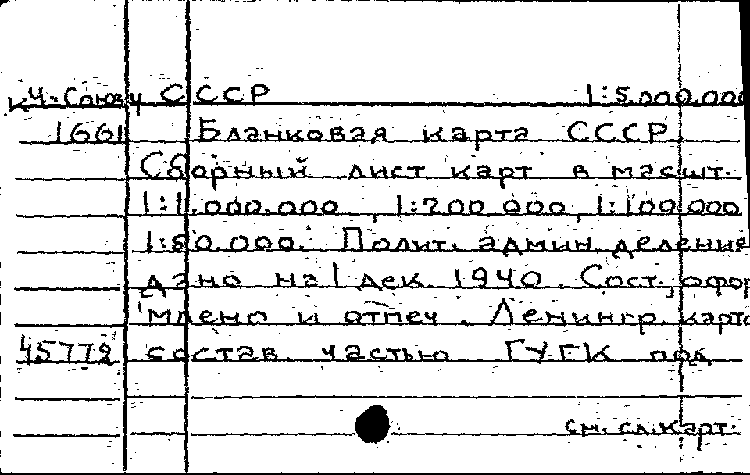 К Ч-Союзу СССР 1:5.000.000
1661 Бланковая карта СССР
Сборный лист карт в масшт.
1:1.000.000, 1:200.000, 1:100.000
1:50.000. Полит. админ. деление
дано на 1 дек. 1940. Сост., офор
млено и отпеч. Ленингр. карто
45772 состав. частью ГУГК под
см. сл. карт.